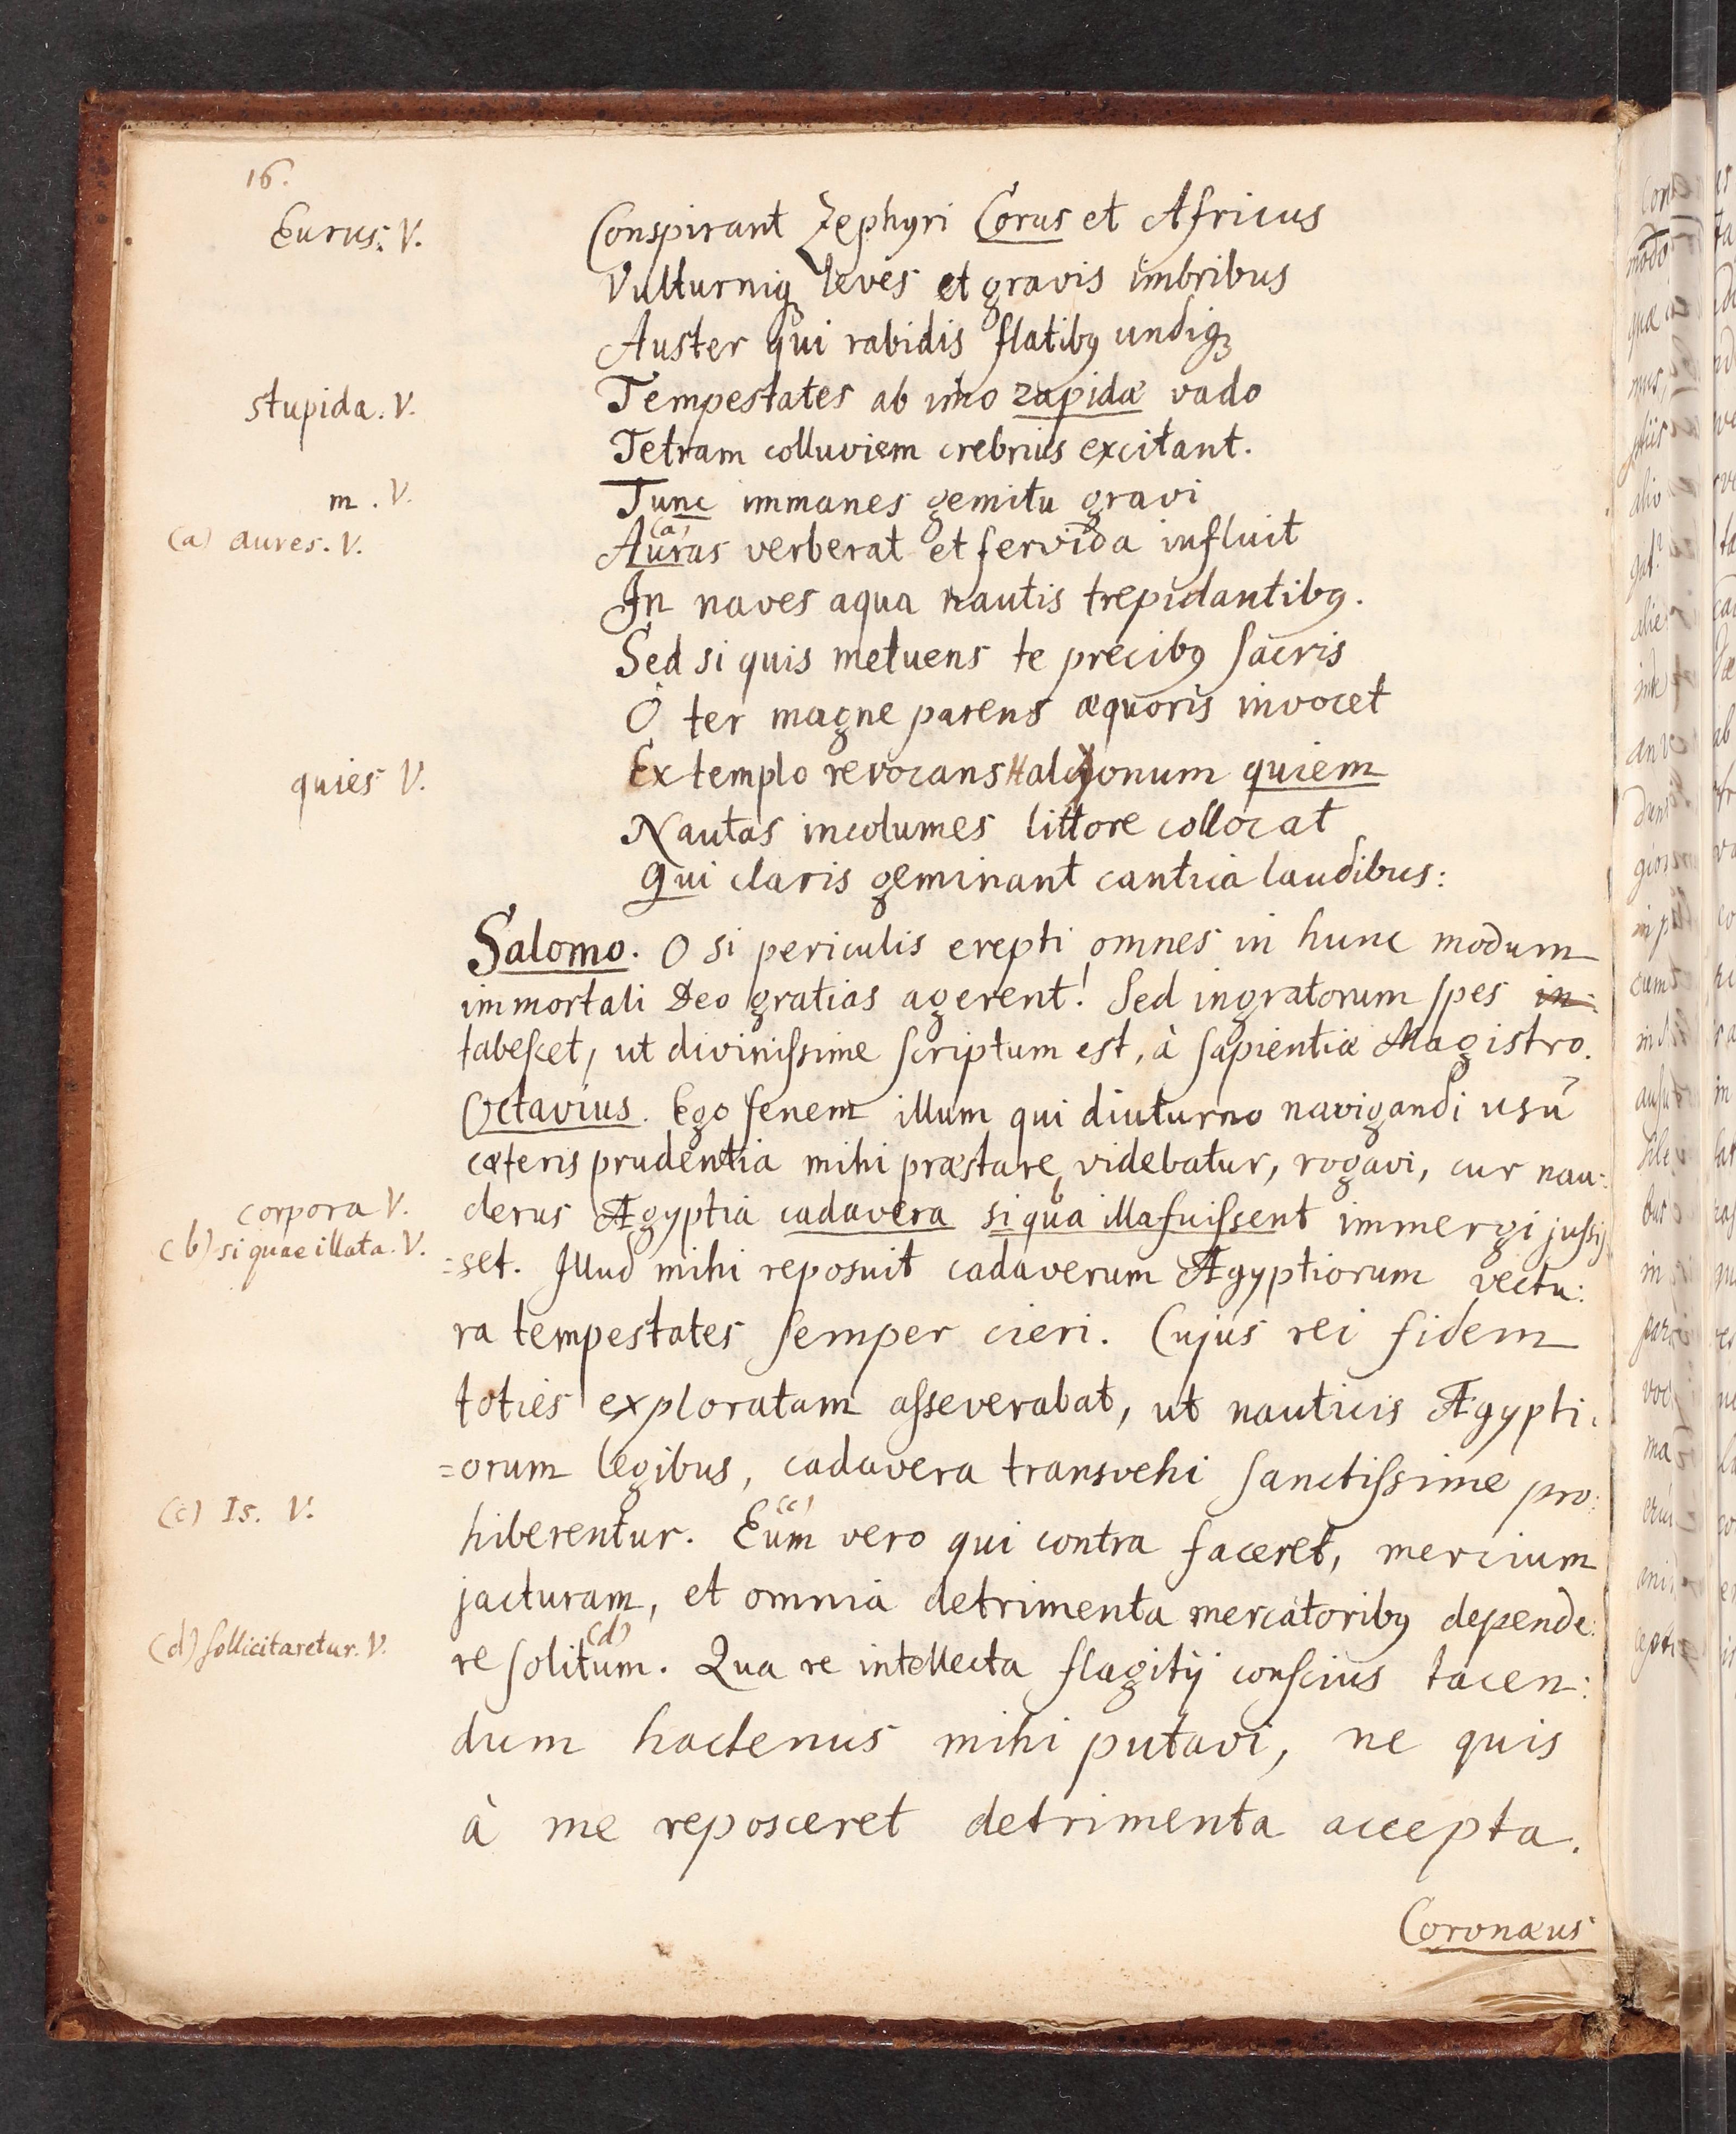 16.
Eurus. V.
Conspirant Zephyri Corus et Africus
Vulturniq leves et gravis imbribus
Auster qui rabidis flatibꝰ undiqꝫ
stupida. V.
Tempestates ab imo rapidæ vado
Tetram colluviem crebrius excitant.
m. V.
Tunc immanes gemitu gravi
(a) aures. V.
(a)
Auras verberat et fervida influit
In naves aqua nautis trepidantibꝰ.
Sed si quis metuens te precibꝰ sacris
O ter magne parens æquoris invocet
quies V.
Extemplo revocans Halcyonum quiem
Nautas incolumes littore collocat
Qui claris geminant cantica laudibus:
Salomo. O si periculis erepti omnes in hunc modum
immortali Deo gratias agerent! Sed ingratorum spes in-
tabescet, ut divinissime scriptum est, à sapientiæ Magistro.
Octavius. Ego senem illum qui diuturno navigandi usu
cæteris prudentia mihi præstare videbatur, rogavi, cur nau:
corpora V.
(b) si quae illata. V.
clerus Ægyptia cadavera si qua illa fuissent immergi jussis
=set. Illud mihi reposuit cadaverum Ægyptiorum vectu:
ra tempestates semper cieri. Cujus rei fidem
toties exploratam asseverabat, ut nauticis Ægypti:
=orum legibus, cadavera transvehi sanctissime pro:
(c) Is. V.
(c)
hiberentur. Eum vero qui contra faceret, mercium
jacturam, et omnia detrimenta mercatoribꝰ depende:
(d) sollicitaretur. V.
(d)
re solitum. Qua re intellecta flagitij conscius tacen:
dum hactenus mihi putavi, ne quis
à me reposceret detrimenta accepta.
Coronæus